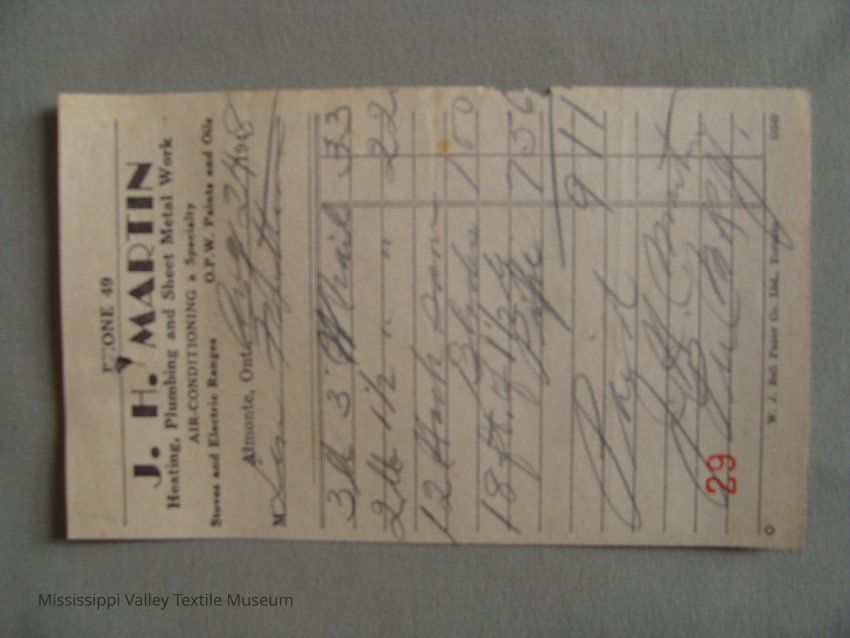 PHONE 49
J. H. MARTIN
Heating, Plumbing and Sheet Metal Work
AIR-CONDITIONING a Specialty
Stoves and Electric Ranges O.P.W. Paints and Oils
Almonte, Ont. Aug 24 1948
M
3 lb 3" Nails 33
2 lb 1½ " " 22
12 Hack Saw
Blades 1 00
18 ft. of 1½ G.
Pipe 7 56
9 11
Paid
J. H. Martin
29
W. J. Bell Paper Co. Ltd., Toronto
Mississippi Valley Textile Museum